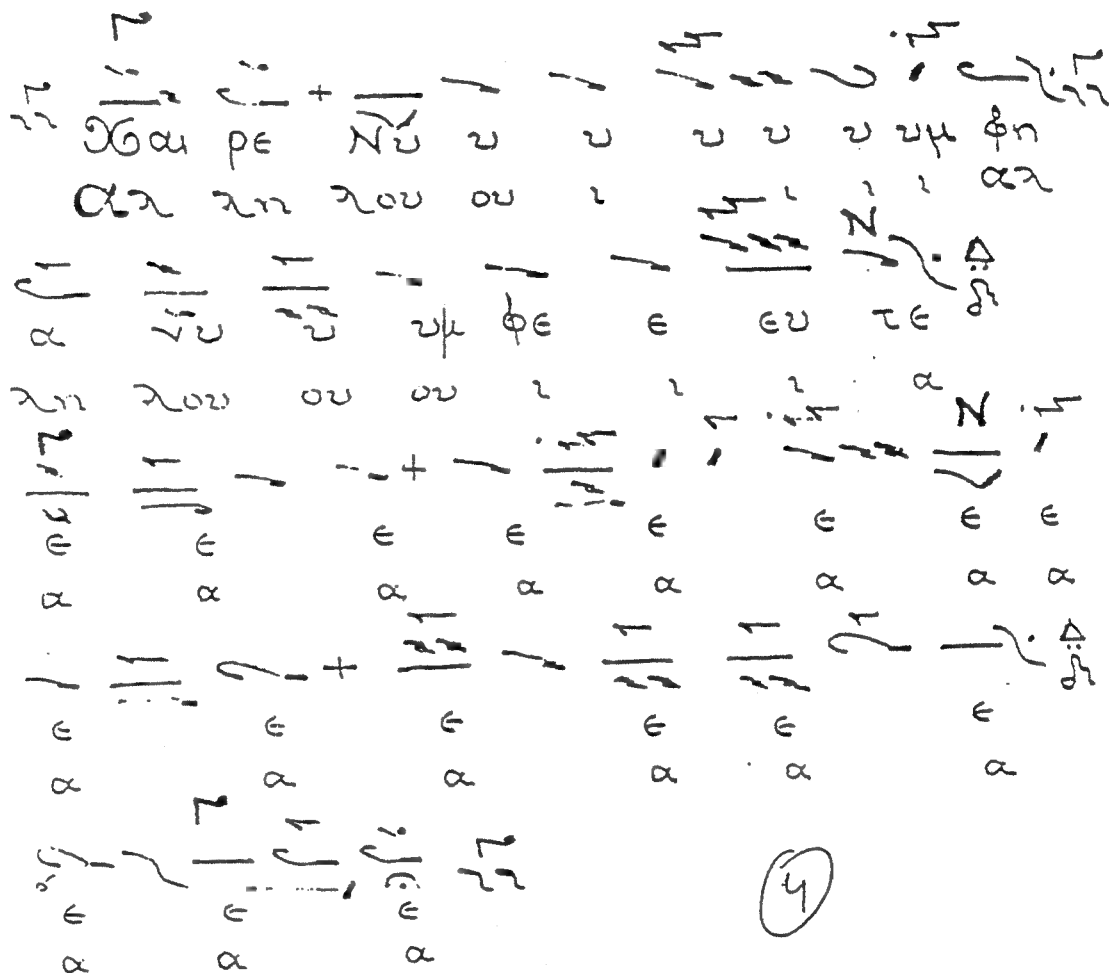 Χαι ρε Νυ υ υ υ υ υ υμ φη
αλ λη λου ου ι ι ι ι αλ
α νυ υ υμ φε ε ευ τε
λη λου ου ου ι ι ι α
ε ε ε ε ε ε ε ε
α α α α α α α α
ε ε ε ε ε ε
α α α α α α
ε ε ε
α α α
4